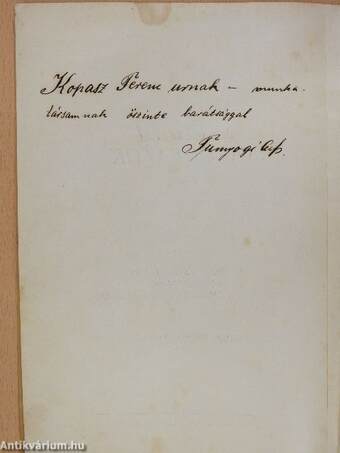 Kopasz Ferenc urnak – munka-
társamnak őszinte barátsággal
Tunyogi
Antikvárium.hu